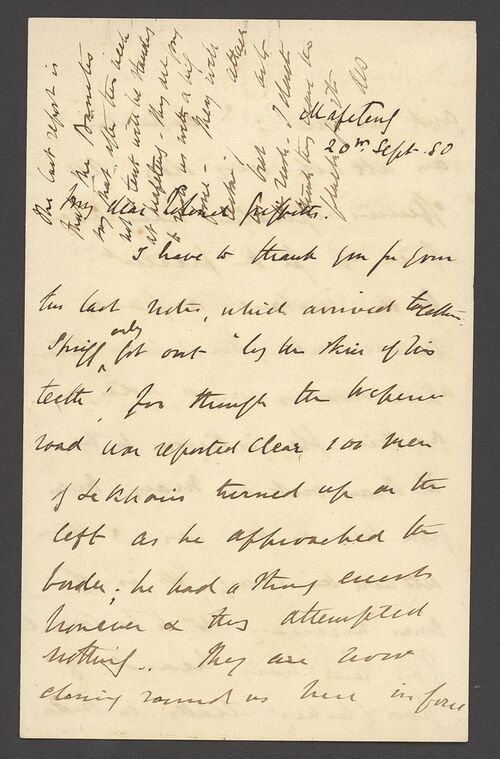 Mafeteng
20th Sept. 80
My dear Colonel Griffith.
I have to thank you for your
two last notes, which arrived together.
Spriff only got out "by the skin of his
teeth", for though the Wepener
road was reported clear, 100 men
of Lekhoais turned up on the
left as he approached the
border; he had a strong escort
however & they attempted
nothing.. They are now
closing round us here in force
The last report is
that the Basutos
say that after this week
not a tent will be standing
at Mafeteng - they are going
They will attack